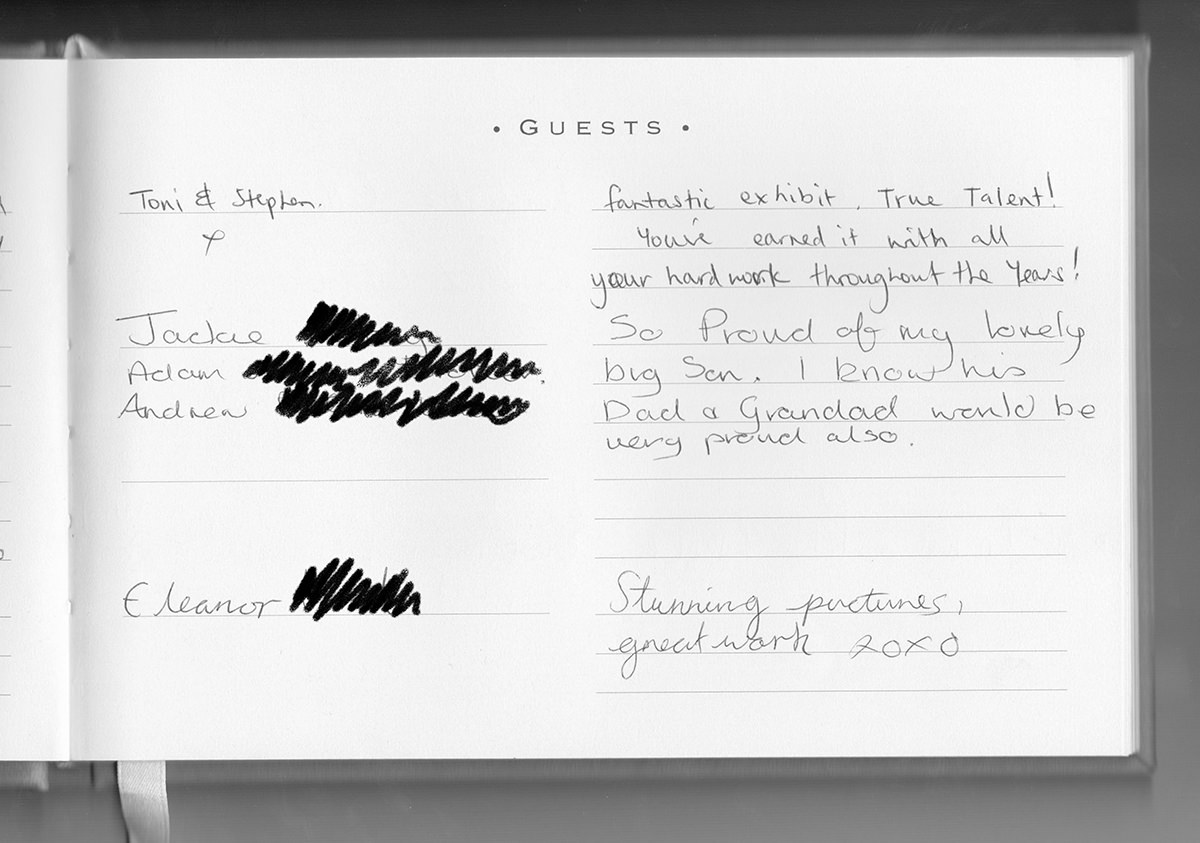 • GUESTS •
Toni & Stephen.
fantastic exhibit. True Talent!
x
You've earned it with all
your hard work throughout the Years!
Jackie
So Proud of my lovely
Adam
big Son. I know his
Andrew
Dad & Grandad would be
very proud also.
Eleanor
Stunning pictures,
great work xoxo